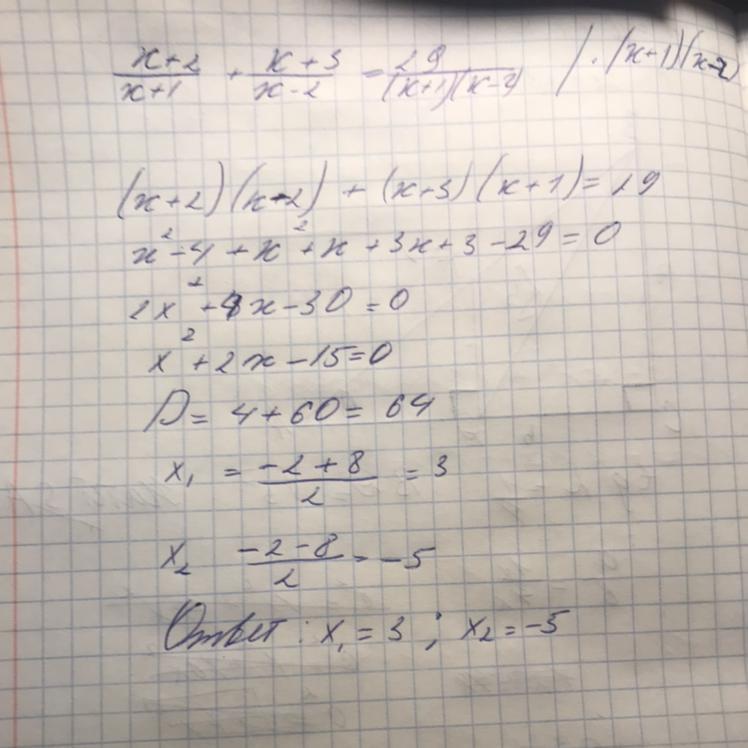 (x+2)/(x+1) + (x+3)/(x-2) = 29/((x+1)(x-2)) / · (x+1)(x-2)
(x+2)(x-2) + (x+3)(x+1) = 29
x²-4+x²+x+3x+3-29=0
2x²+4x-30=0
x²+2x-15=0
D=4+60=64
x₁ = (-2+8)/2 = 3
x₂ (-2-8)/2 = -5
Ответ: x₁=3; x₂=-5